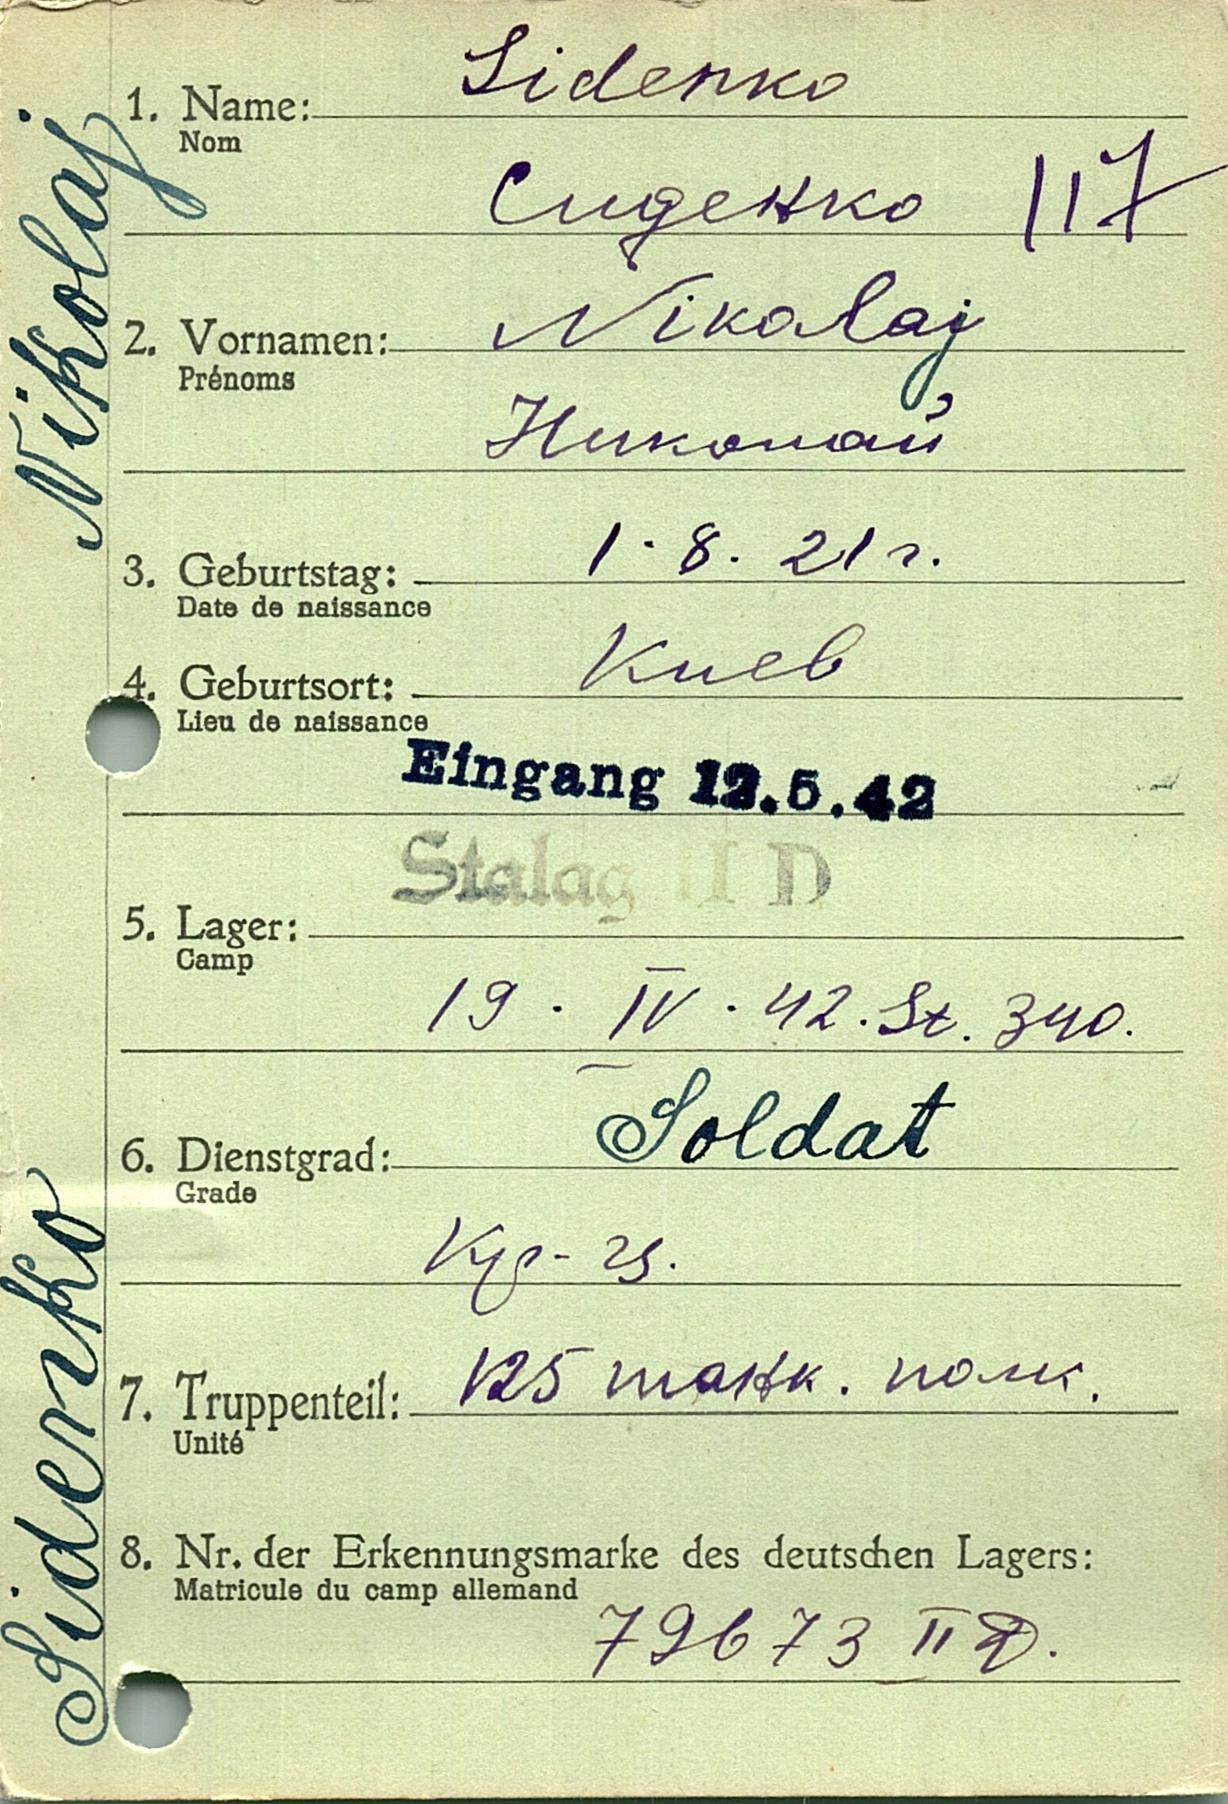 Sidenko
1. Name:
Nom
Сиденко 117
Nikolaj
2. Vornamen:
Prénoms
Николай
1. 8. 21 г.
3. Geburtstag:
Date de naissance
Киев
4. Geburtsort:
Lieu de naissance
Eingang 12.5.42
Stalag II D
5. Lager:
Camp
19. IV. 42. St. 340.
Soldat
6. Dienstgrad:
Grade
7. Truppenteil: 125 танк. полк.
Unité
8. Nr. der Erkennungsmarke des deutschen Lagers:
Matricule du camp allemand
79673 II D.
Sidenko Nikolaj